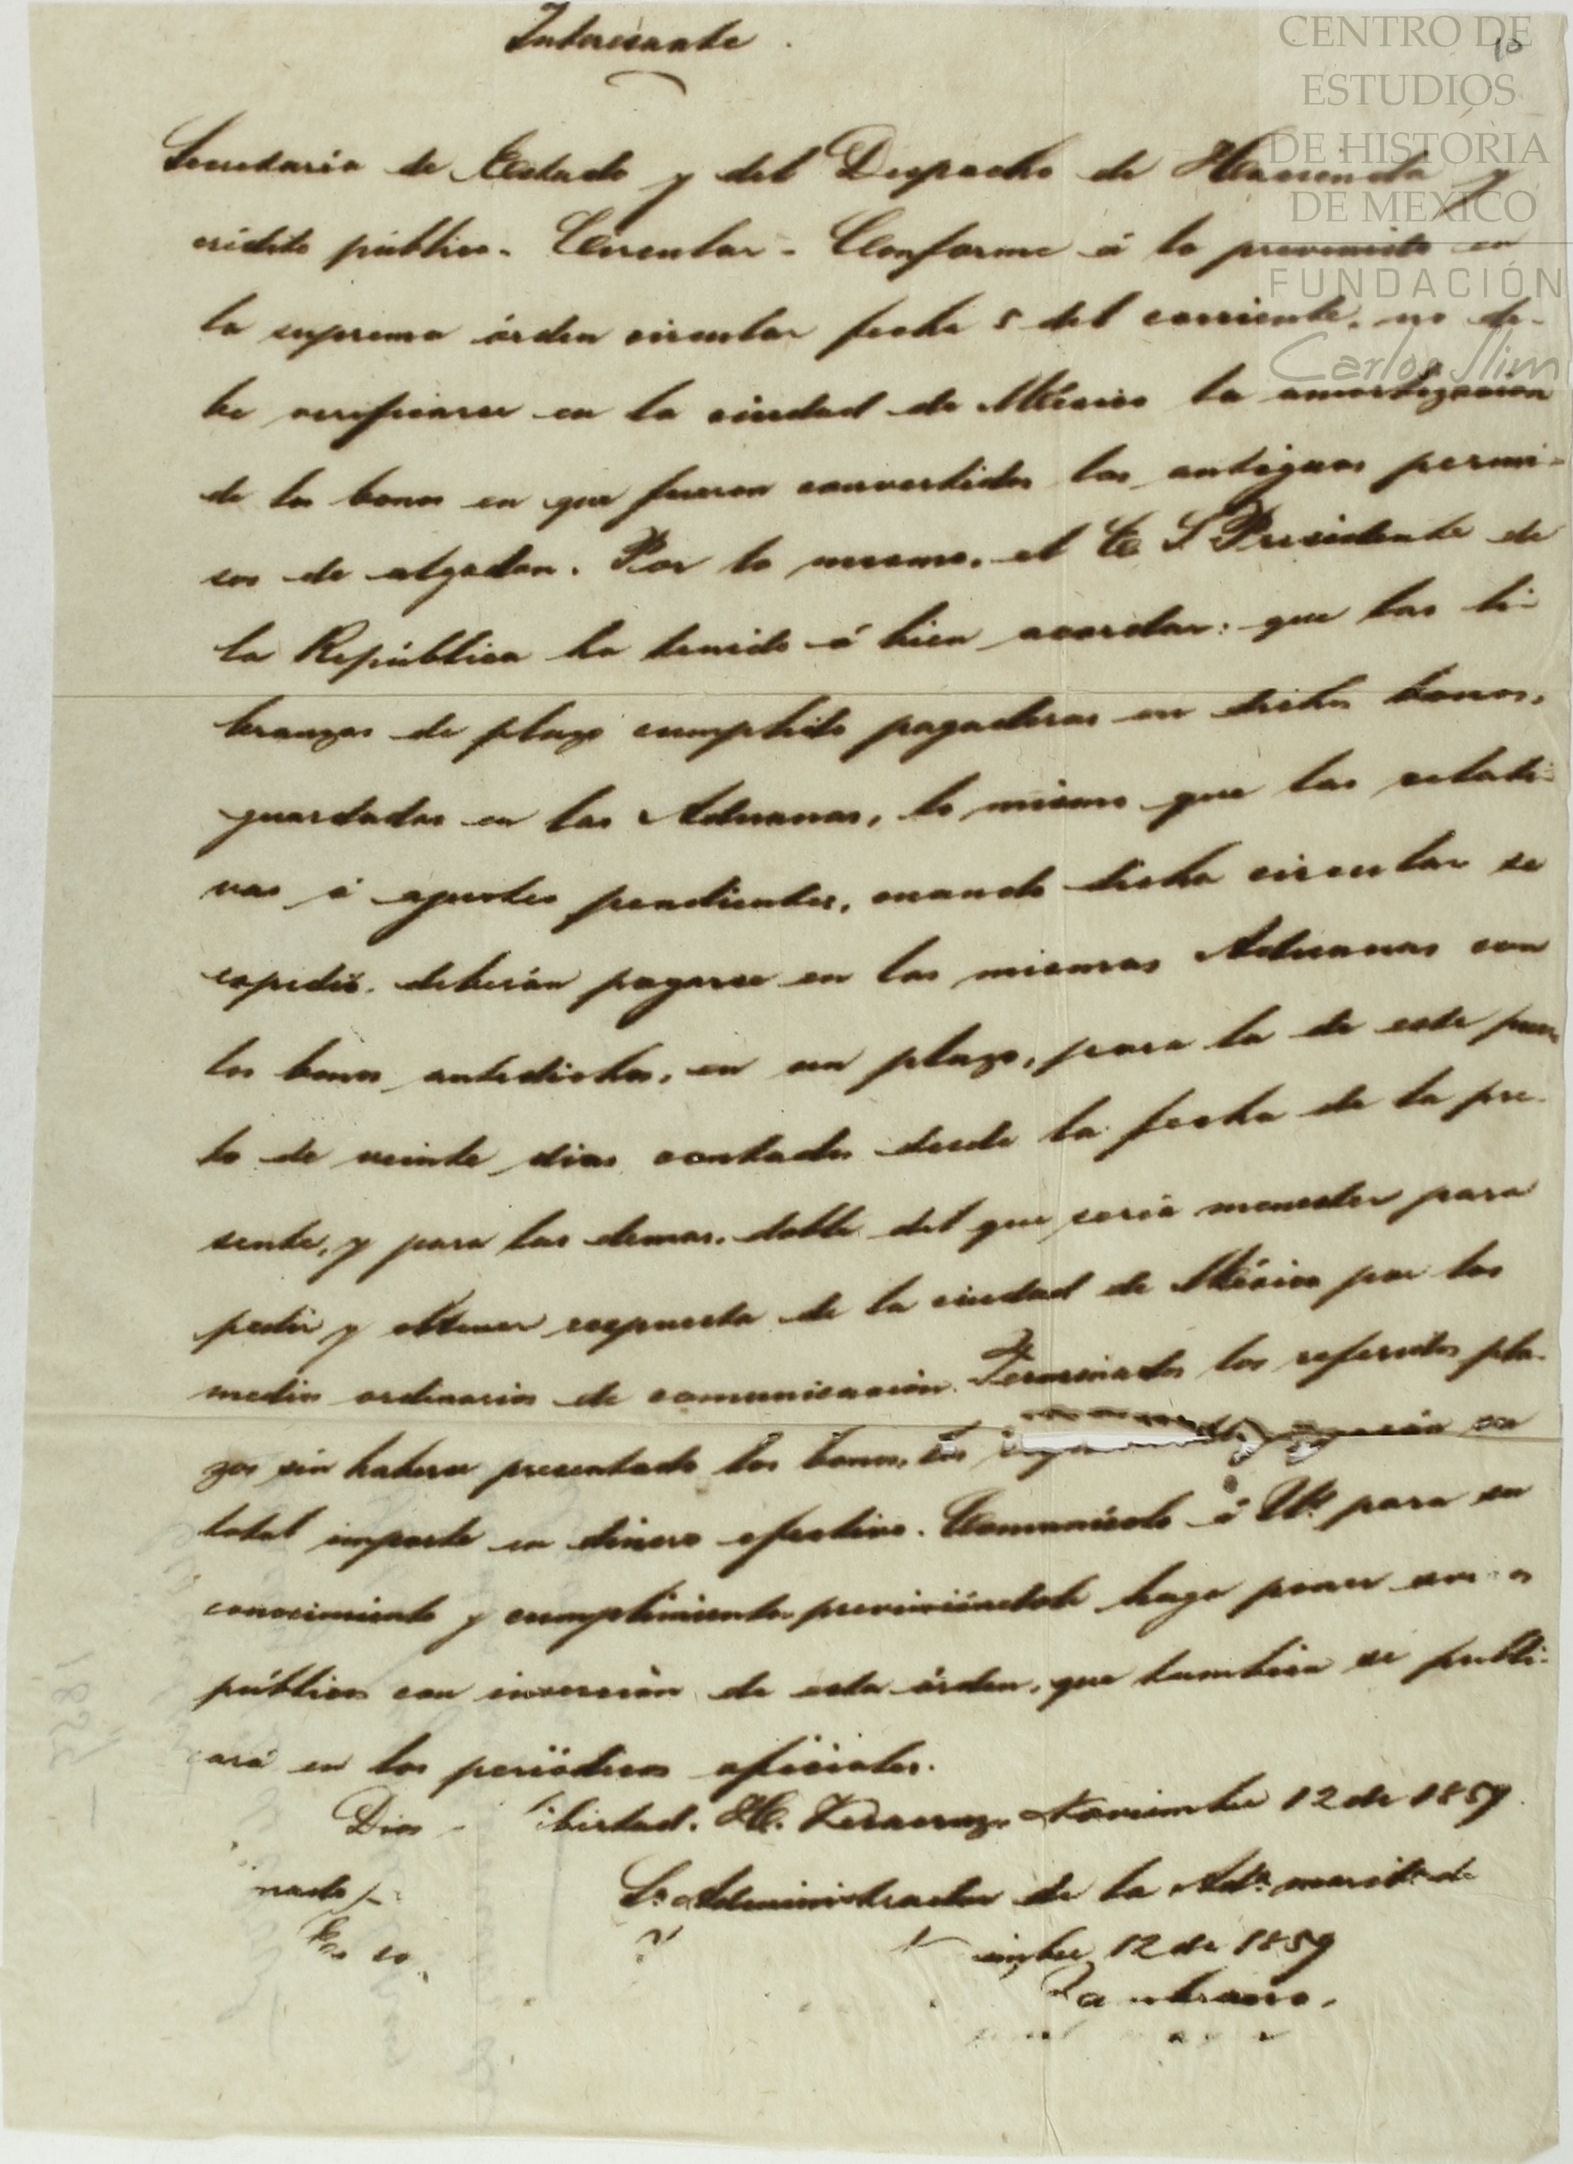 Interesante.
10
CENTRO DE
ESTUDIOS
DE HISTORIA
DE MEXICO
FUNDACIÓN
Carlos Slim
Secretaría de Estado y del Despacho de Hacienda y
crédito público. Circular - Conforme á lo prevenido en
la suprema órden circular fecha 5 del corriente, no de-
be verificarse en la ciudad de México la amortizacion
de los bonos en que fueron convertidos los antiguos permi-
sos de algodon. Por lo mismo, el E. S. Presidente de
la República ha tenido á bien acordar: que las li-
branzas de plazo cumplido pagaderas en dichos bonos,
guardadas en las Aduanas, lo mismo que las relati-
vas á ajustes pendientes, cuando dicha circular se
espidió, deberán pagarse en las mismas Aduanas con
los bonos antedichos, en un plazo, para la de este puer-
to de veinte dias contados desde la fecha de la pre-
sente, y para las demas, doble del que seria menester para
pedir y obtener respuesta de la ciudad de México por los
medios ordinarios de comunicacion. Terminados los referidos pla-
zos sin haberse presentado los bonos, los pagarán su
total importe en dinero efectivo. Comunícolo á V. para su
conocimiento y cumplimiento previniéndole haga poner
públicos con insercion de esta órden, que tambien se publi-
cará en los periódicos oficiales.
Dios libertad. H. Veracruz. Noviembre 12 de 1859.
Sr. Administrador de la Ada. marita. de
12 de 1859
Zambrano.